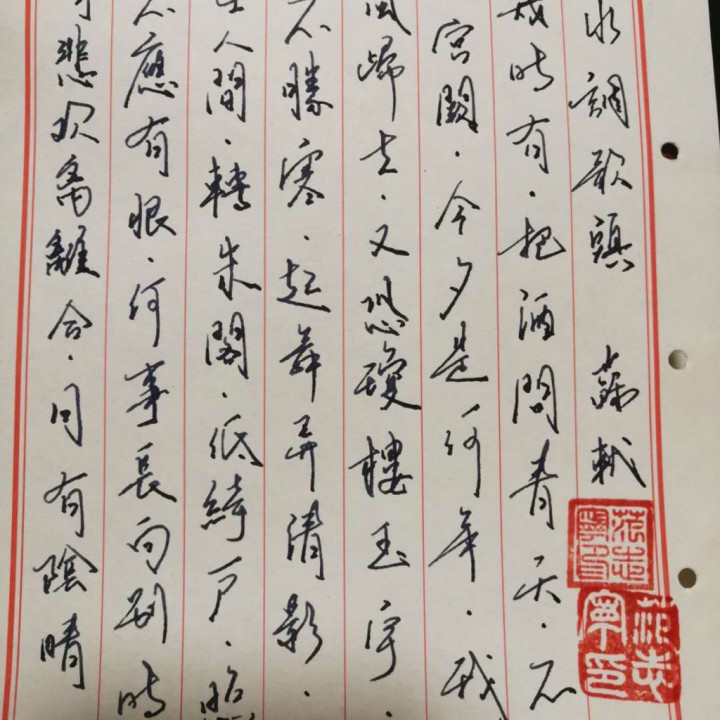 水調歌頭 蘇軾
幾時有.把酒問青天.不
宮闕.今夕是何年.我
風歸去.又恐瓊樓玉宇
不勝寒.起舞弄清影.
在人間.轉朱閣.低綺戶.照
不應有恨.何事長向別時
悲歡離合.月有陰晴
范志寧印
范志寧印